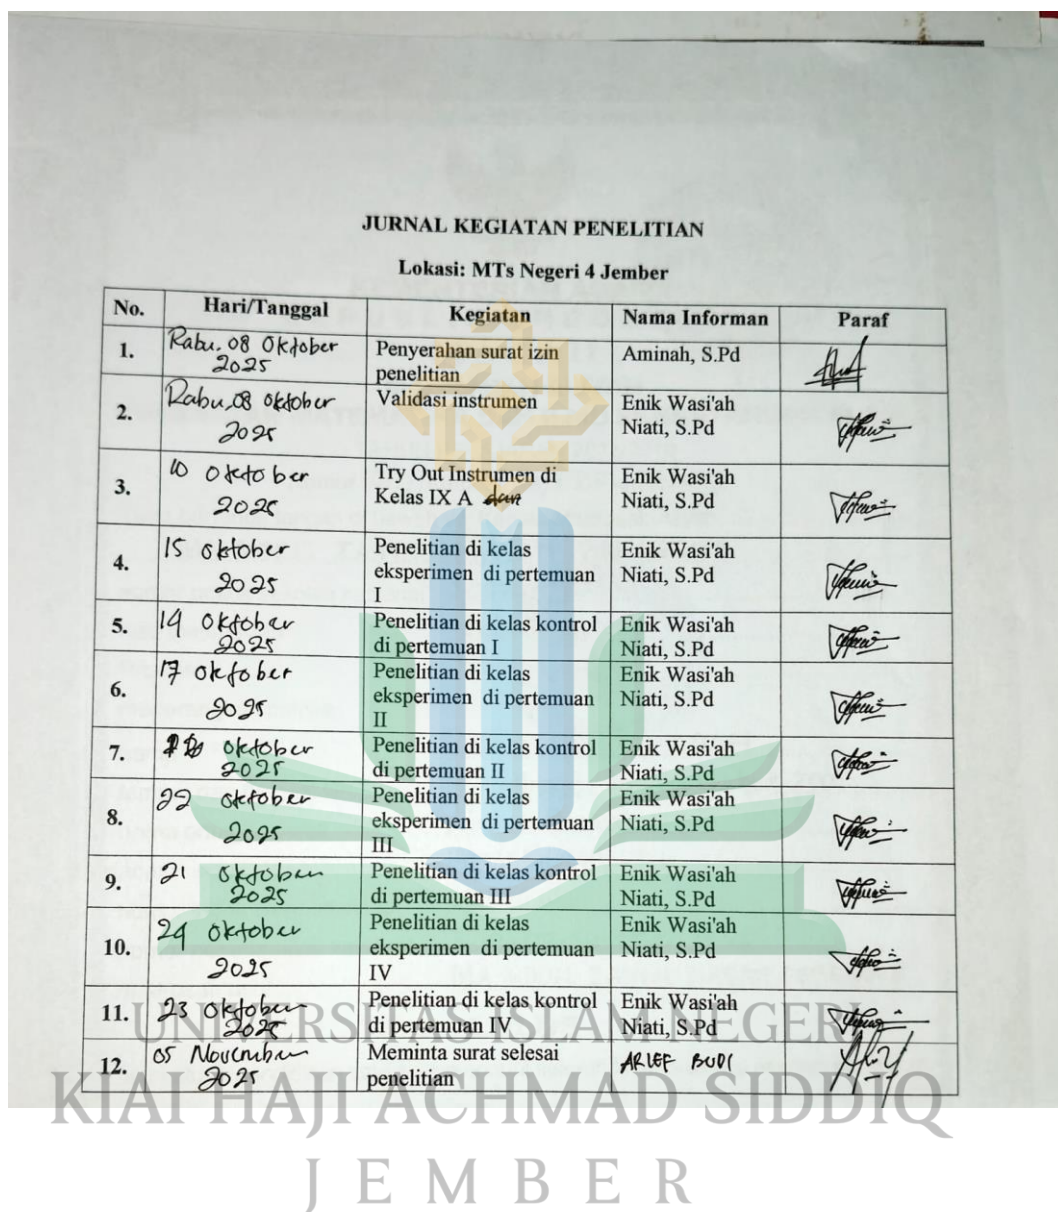 JURNAL KEGIATAN PENELITIAN
Lokasi: MTs Negeri 4 Jember
No. Hari/Tanggal Kegiatan Nama Informan Paraf
1. Rabu, 08 Oktober 2025 Penyerahan surat izin penelitian Aminah, S.Pd
2. Rabu, 08 Oktober 2025 Validasi instrumen Enik Wasi'ah Niati, S.Pd
3. 10 Oktober 2025 Try Out Instrumen di Kelas IX A dan Enik Wasi'ah Niati, S.Pd
4. 15 Oktober 2025 Penelitian di kelas eksperimen di pertemuan I Enik Wasi'ah Niati, S.Pd
5. 14 Oktober 2025 Penelitian di kelas kontrol di pertemuan I Enik Wasi'ah Niati, S.Pd
6. 17 Oktober 2025 Penelitian di kelas eksperimen di pertemuan II Enik Wasi'ah Niati, S.Pd
7. Oktober 2025 Penelitian di kelas kontrol di pertemuan II Enik Wasi'ah Niati, S.Pd
8. 22 Oktober 2025 Penelitian di kelas eksperimen di pertemuan III Enik Wasi'ah Niati, S.Pd
9. 21 Oktober 2025 Penelitian di kelas kontrol di pertemuan III Enik Wasi'ah Niati, S.Pd
10. 24 Oktober 2025 Penelitian di kelas eksperimen di pertemuan IV Enik Wasi'ah Niati, S.Pd
11. 23 Oktober 2025 Penelitian di kelas kontrol di pertemuan IV Enik Wasi'ah Niati, S.Pd
12. 05 November 2025 Meminta surat selesai penelitian ARIEF BUDI
UNIVERSITAS ISLAM NEGERI
KIAI HAJI ACHMAD SIDDIQ
JEMBER